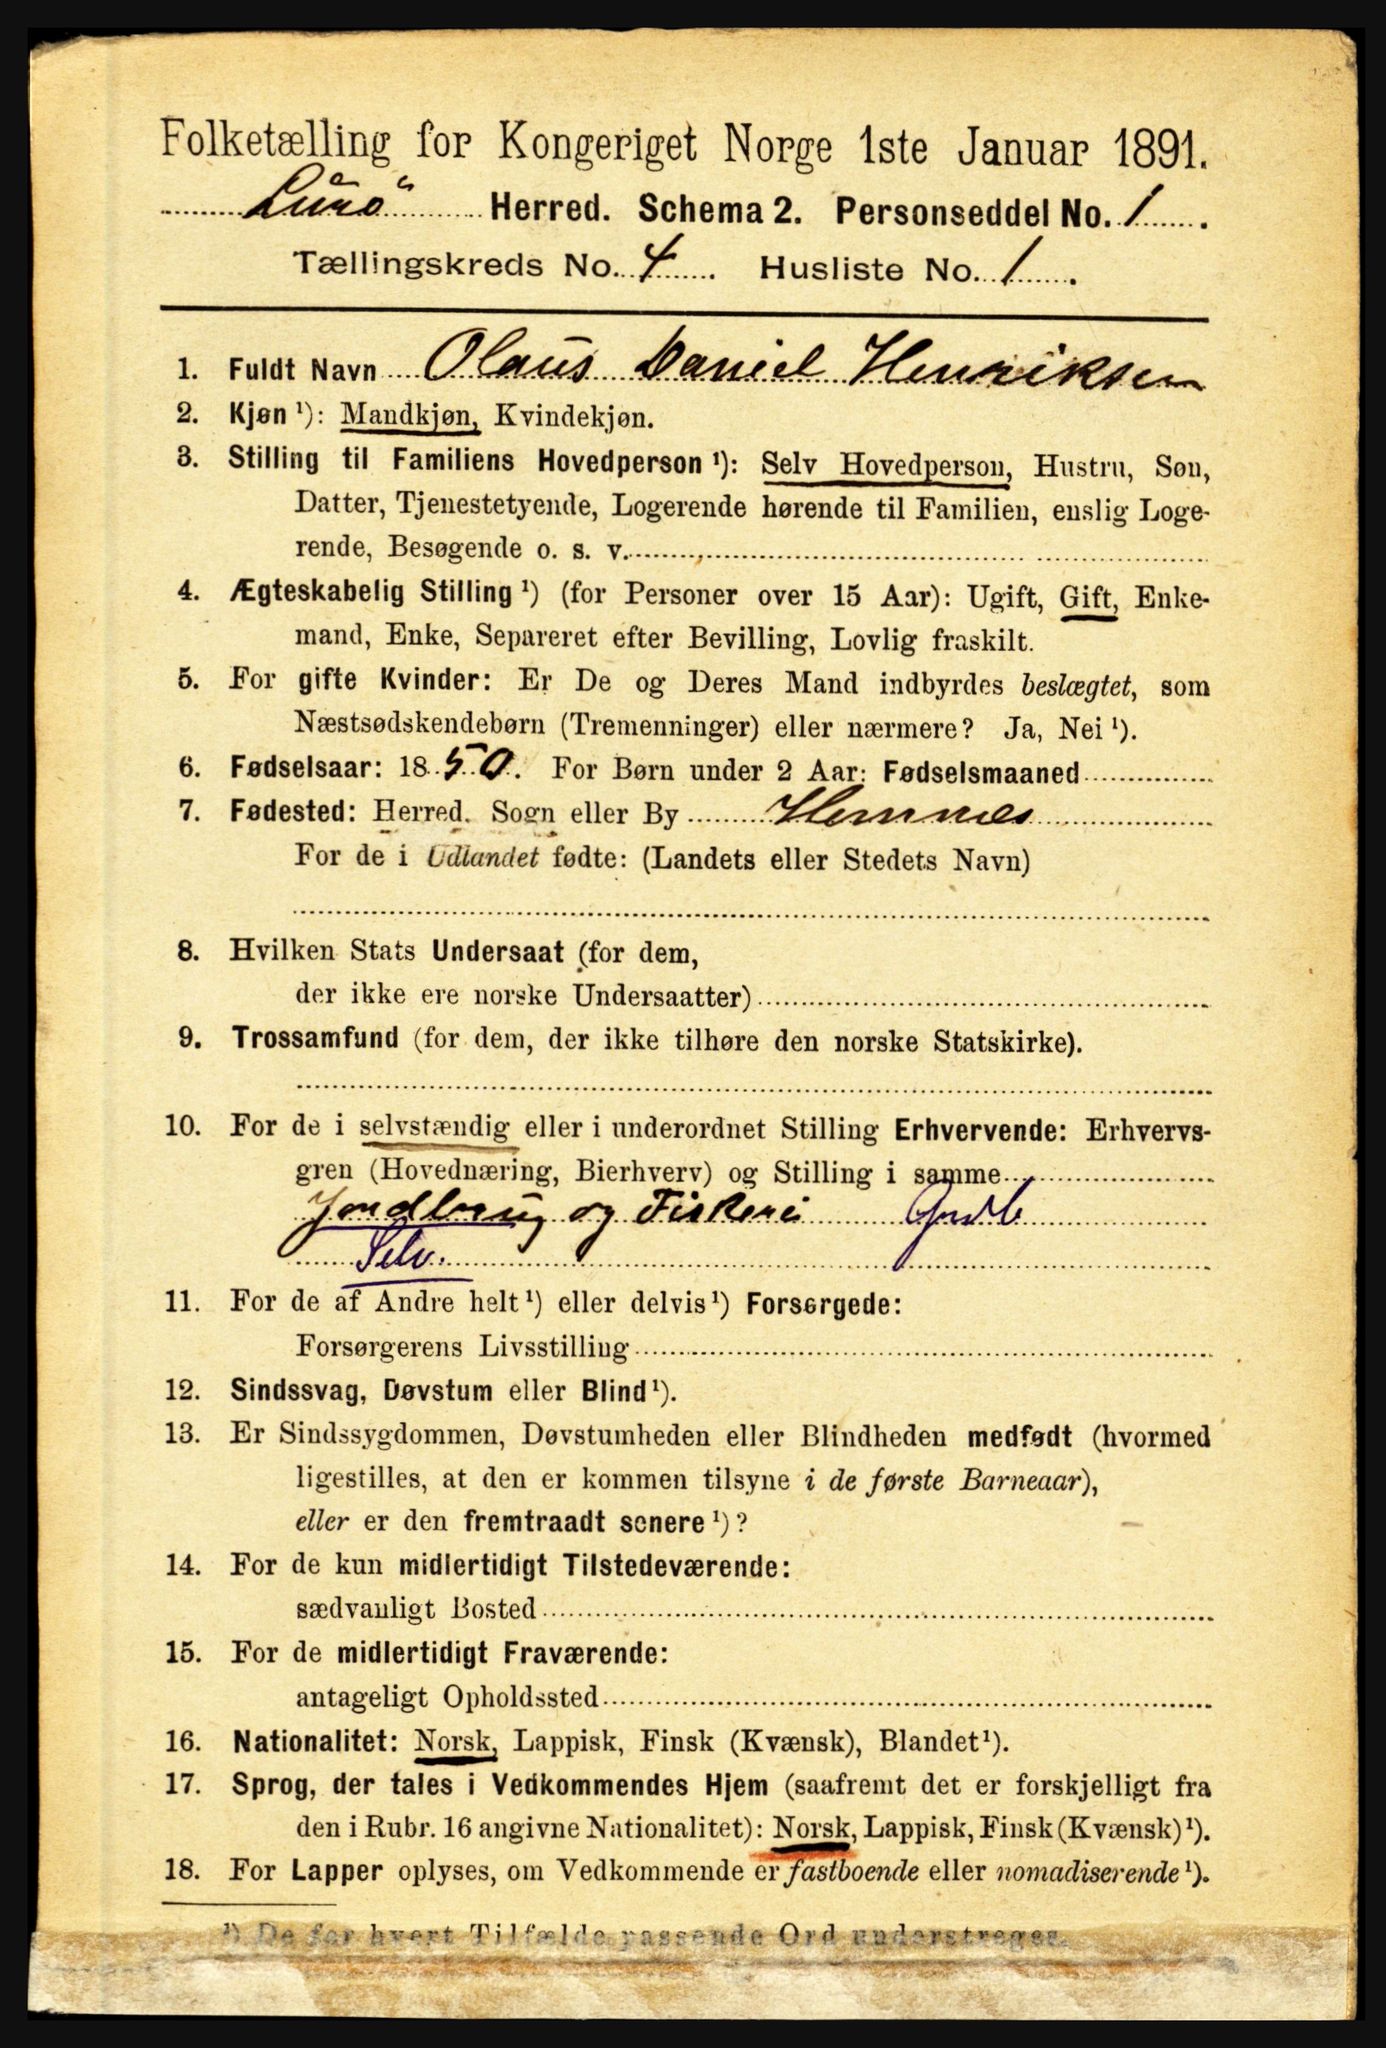 Folketælling for Kongeriget Norge 1ste Januar 1891.
Lurö Herred. Schema 2. Personseddel No. 1.
Tællingskreds No. 4. Husliste No. 1.
1. Fuldt Navn Olaus Daniel Henriksen
2. Kjøn ¹): Mandkjøn, Kvindekjøn.
3. Stilling til Familiens Hovedperson ¹): Selv Hovedperson, Hustru, Søn,
Datter, Tjenestetyende, Logerende hørende til Familien, enslig Loge-
rende, Besøgende o. s. v.
4. Ægteskabelig Stilling ¹) (for Personer over 15 Aar): Ugift, Gift, Enke-
mand, Enke, Separeret efter Bevilling, Lovlig fraskilt.
5. For gifte Kvinder: Er De og Deres Mand indbyrdes beslægtet, som
Næstsødskendebørn (Tremenninger) eller nærmere? Ja, Nei ¹).
6. Fødselsaar: 1850. For Børn under 2 Aar: Fødselsmaaned
7. Fødested: Herred. Sogn eller By Hemnes
For de i Udlandet fødte: (Landets eller Stedets Navn)
8. Hvilken Stats Undersaat (for dem,
der ikke ere norske Undersaatter)
9. Trossamfund (for dem, der ikke tilhøre den norske Statskirke).
10. For de i selvstændig eller i underordnet Stilling Erhvervende: Erhvervs-
gren (Hovednæring, Bierhverv) og Stilling i samme
Jordbrug og Fiskeri
Selv.
11. For de af Andre helt ¹) eller delvis ¹) Forsørgede:
Forsørgerens Livsstilling
12. Sindssvag, Døvstum eller Blind ¹).
13. Er Sindssygdommen, Døvstumheden eller Blindheden medfødt (hvormed
ligestilles, at den er kommen tilsyne i de første Barneaar),
eller er den fremtraadt senere ¹)?
14. For de kun midlertidigt Tilstedeværende:
sædvanligt Bosted
15. For de midlertidigt Fraværende:
antageligt Opholdssted
16. Nationalitet: Norsk, Lappisk, Finsk (Kvænsk), Blandet ¹).
17. Sprog, der tales i Vedkommendes Hjem (saafremt det er forskjelligt fra
den i Rubr. 16 angivne Nationalitet): Norsk, Lappisk, Finsk (Kvænsk) ¹).
18. For Lapper oplyses, om Vedkommende er fastboende eller nomadiserende ¹).
¹) De for hvert Tilfælde passende Ord understreges.